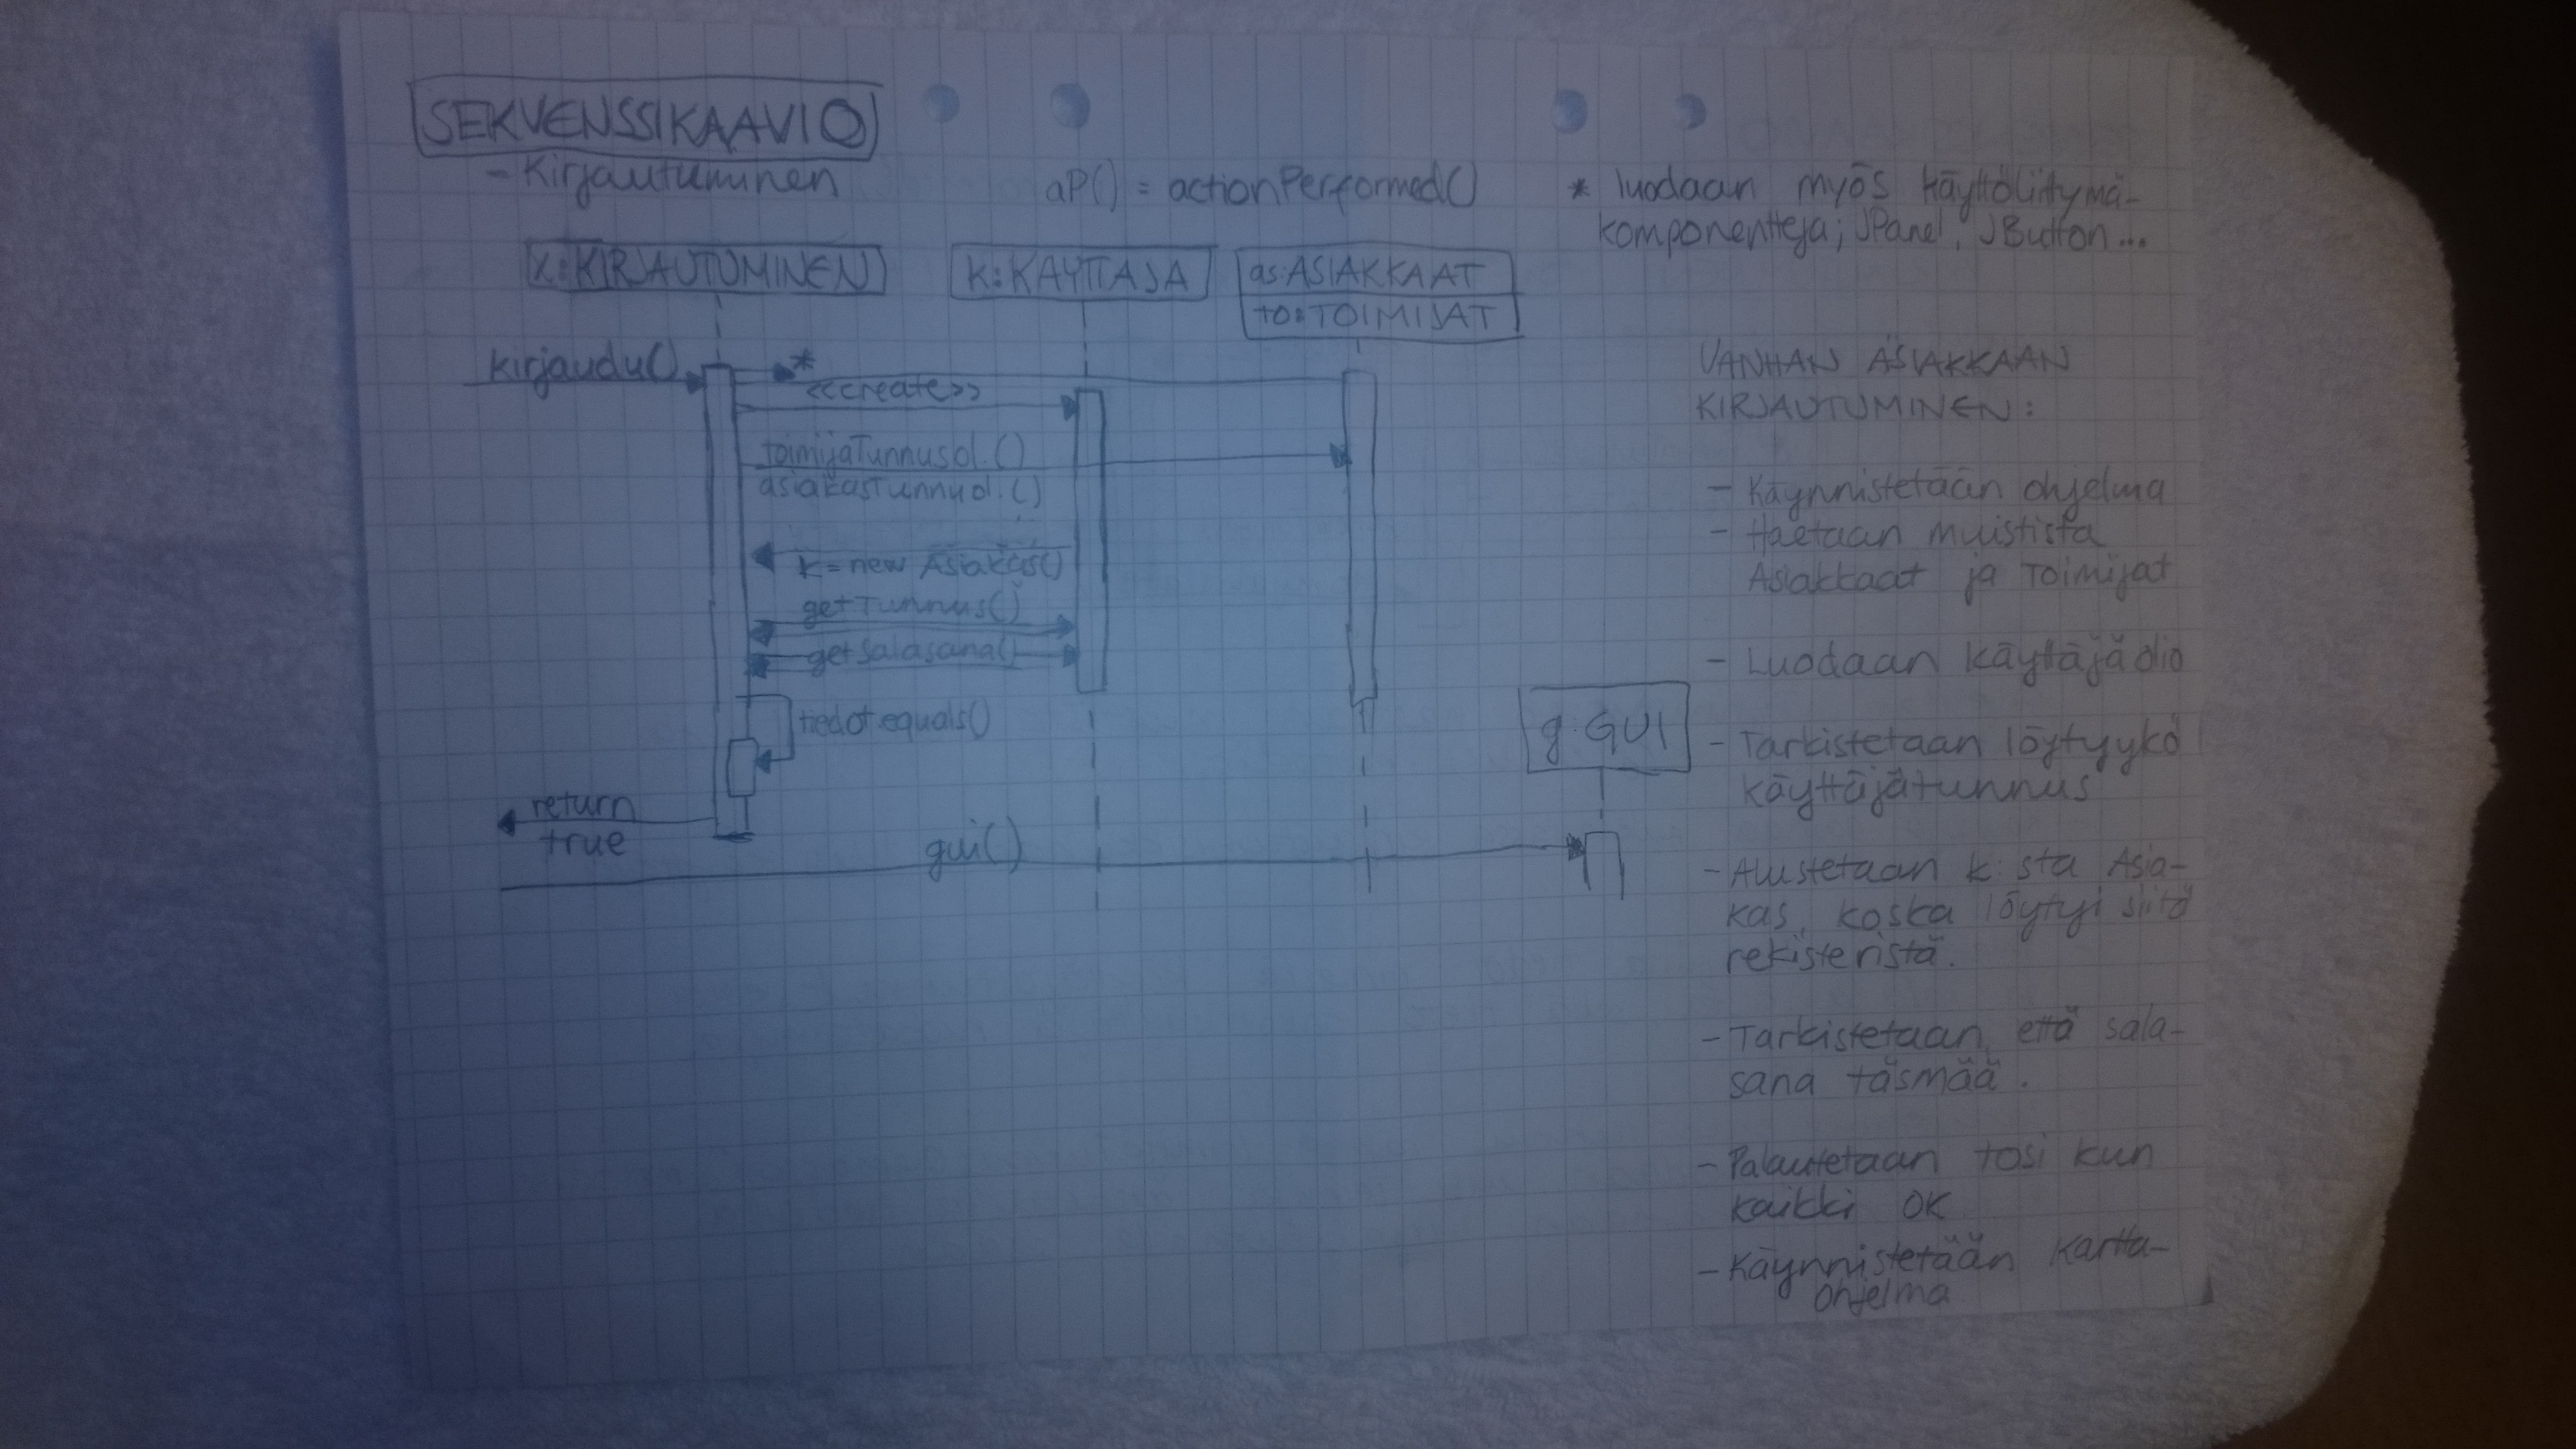 SEKVENSSIKAAVIO
- Kirjautuminen
aP() = actionPerformed()
* luodaan myös käyttöliitymä-
komponentteja; JPanel, JButton...
x:KIRJAUTUMINEN
k:KÄYTTAJA
as:ASIAKKAAT
to:TOIMIJAT
kirjaudu()
*
<<create>>
toimijaTunnusol.()
asiakasTunnuol.()
k=new Asiakas()
getTunnus()
getSalasana()
tiedot.equals()
return
true
gui()
g:GUI
VANHAN ASIAKKAAN
KIRJAUTUMINEN:
- Käynnistetään ohjelma
- Haetaan muistista
Asiakkaat ja Toimijat
- Luodaan käytäjä olio
- Tarkistetaan löytyykö
käyttäjätunnus
- Alustetaan k:sta Asia-
kas, koska löytyi siitä
rekisteristä.
- Tarkistetaan, että sala-
sana täsmää.
- Palautetaan tosi kun
kaikki OK
- Käynnistetään Kartta-
ohjelma